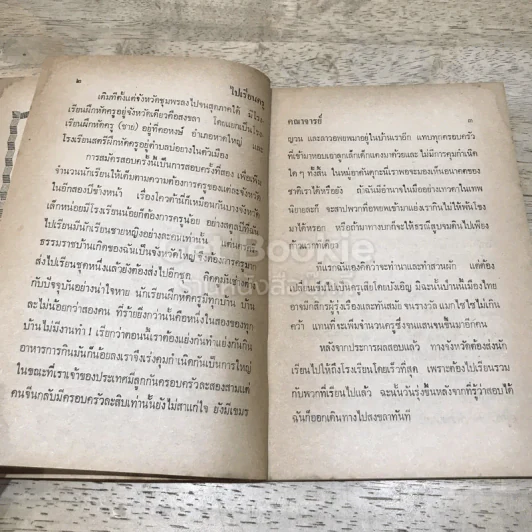 ๒
ไปเรียนครู
เดิมทีตั้งแต่จังหวัดชุมพรลงไปจนสุดภาคใต้ มีโรง
เรียนฝึกหัดครูอยู่จังหวัดเดียวคือสงขลา โดยแยกเป็นโรง
เรียนฝึกหัดครู (ชาย) อยู่ที่คอหงษ์ อำเภอหาดใหญ่ และ
โรงเรียนสตรีฝึกหัดครูอยู่ตำบลบ่อยางในตัวเมือง
การสมัครสอบครั้งนี้เป็นการสอบครั้งที่สอง เพื่อเพิ่ม
จำนวนนักเรียนให้เต็มตามความต้องการครูของแต่ละจังหวัด
ในอีกสองปีข้างหน้า เรื่องโควต้านี้ก็เหมือนกันบางจังหวัด
เล็กหน่อยมีโรงเรียนน้อยก็ต้องการครูน้อย อย่างสตูลปีที่ฉัน
เรียนไปมีนักเรียนชายหญิงอย่างละคนเท่านั้น แต่นคร
ธรรมราชบ้านเกิดของฉันเป็นจังหวัดใหญ่จึงต้องการครูมาก
ส่งไปเรียนชุดหนึ่งแล้วยังต้องส่งไปอีกชุด
กับปัจจุบันอย่างน่าใจหาย นักเรียนฝึกหัดครูมีทุกบ้าน บ้าน
ละไม่น้อยกว่าสองคน ที่ร้ายยิ่งกว่านั้นคือหนึ่งในสองของทุก
บ้านไม่มีงานทำ ! เรียกว่าตอนนี้เราต้องแย่งกันทำแย่งกันกิน
อาหารการกินมันก็น้อยลงเราจึงเร่งคุมกำเนิดกันเป็นการใหญ่
ในขณะที่เราเจ้าของประเทศมีลูกกันครอบครัวละสองสามแต่
คนจีนกลับมีครอบครัวละสิบเท่านั้นยังไม่สาแก่ใจ ยังมีเขมร
คณาจารย์
๓
ญวน และลาวอพยพมาอยู่ในบ้านเราอีก แทบทุกครอบครัว
ที่เข้ามาหอบเอาลูกเล็กเด็กแดงมาด้วยและ ไม่มีการคุมกำเนิด
ใด ๆ ทั้งสิ้น ในหมู่อาคันตุกะนี้เราพอจะมองเห็นอนาคตของ
ชาติเราได้หรือยัง ถ้าฉันมีอำนาจในมืออย่างเทวดาในเทพ
นิยายละก็ จะสาปพวกที่อพยพเข้ามาแย่งเรากินไม่ให้เห็นโขง
มาได้หรอก หรือถ้าทางบกก็จะให้ธรณีสูบจมดินไปเพียง
ก้าวแรกทีเดียว
ที่แรกฉันเองคิดว่าจะทำนาและทำสวนผัก แต่ต้อง
เปลี่ยนเข็มไปเป็นครูเสียโดยบังเอิญ มิฉะนั้นป่านนี้เมืองไทย
อาจมีกสิกรผู้รุ่งเรืองและทันสมัย จนรางวัล แมกไซไซไม่เป็น
คว้า แทนที่จะเพิ่มจำนวนครูซึ่งจนแสนจนขึ้นมาอีกคน
หลังจากประการผลสอบแล้ว ทางจังหวัดต้องส่งนัก
เรียนไปให้ถึงโรงเรียนโดยเร็วที่สุด เพราะต้องไปเรียนรวม
กับพวกที่เรียนไปแล้ว ฉะนั้นวันรุ่งขึ้นหลังจากที่รู้ว่าสอบได้
ฉันก็ออกเดินทางไปสงขลาทันที